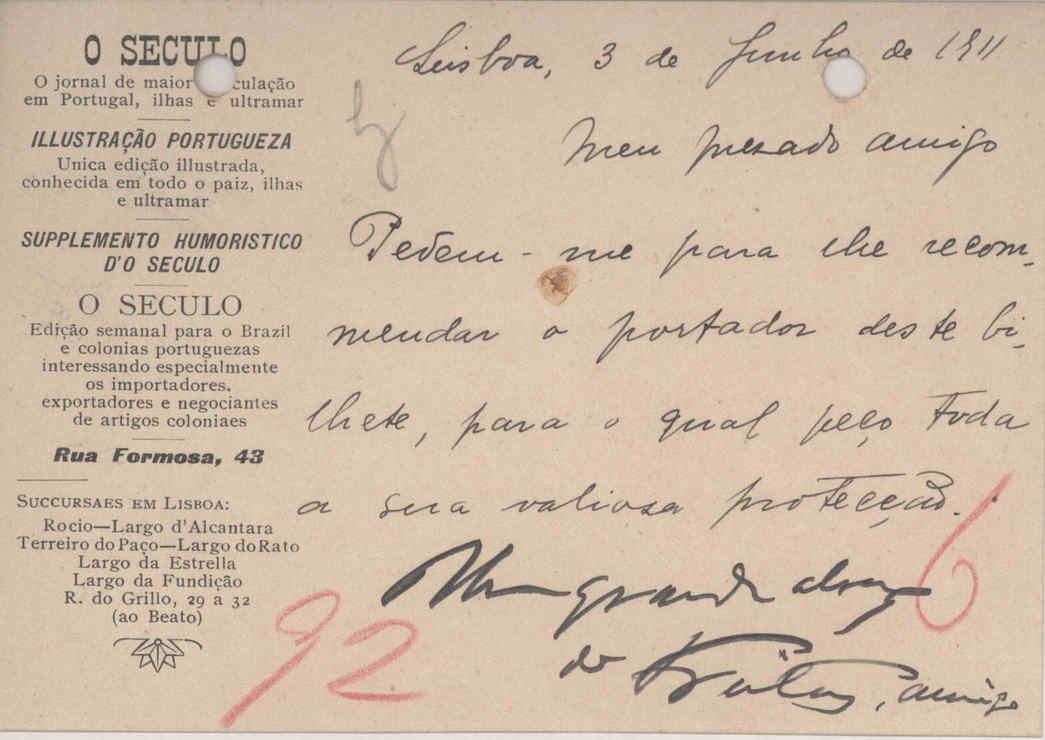 O SECULO
O jornal de maior circulação
em Portugal, ilhas e ultramar
ILLUSTRAÇÃO PORTUGUEZA
Unica edição illustrada,
conhecida em todo o paiz, ilhas
e ultramar
SUPPLEMENTO HUMORISTICO
D'O SECULO
O SECULO
Edição semanal para o Brazil
e colonias portuguezas
interessando especialmente
os importadores,
exportadores e negociantes
de artigos coloniaes
Rua Formosa, 43
SUCCURSAES EM LISBOA:
Rocio—Largo d'Alcantara
Terreiro do Paço—Largo do Rato
Largo da Estrella
Largo da Fundição
R. do Grillo, 29 a 32
(ao Beato)
Lisboa, 3 de Junho de 1911
Meu presado amigo
Pedem-me para lhe recom-
mendar o portador deste bi-
lhete, para o qual peço toda
a sua valiosa protecção.
Um grande abraço
do
amigo
6
92